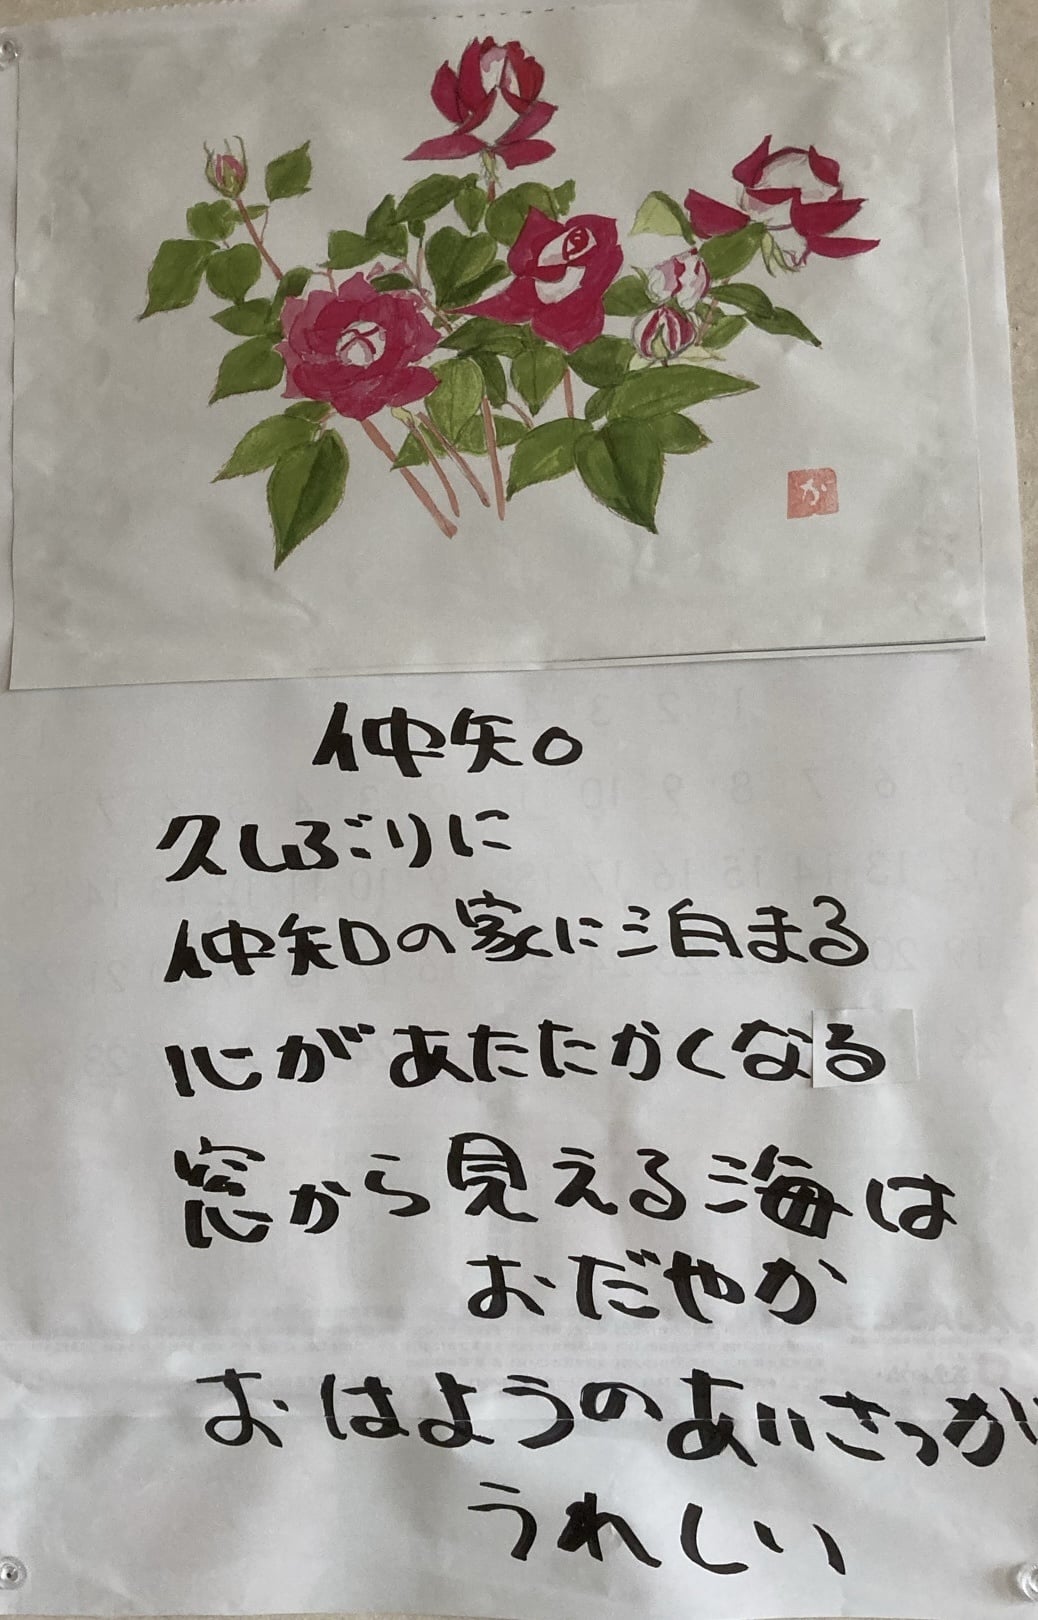 か
仲知
久しぶりに
仲知の家に泊まる
心があたたかくなる
窓から見える海は
おだやか
おはようのあいさつが
うれしい